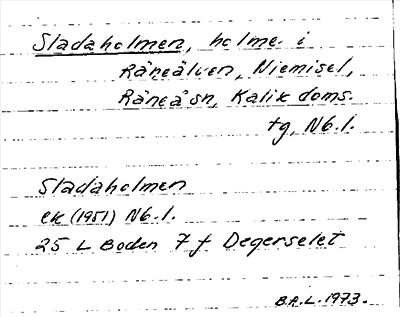 Sladaholmen, holme i
Råneälven, Niemisel,
Råneå sn, Kalix doms.
tg, Nb.l.
Sladaholmen
ek (1951) Nb.l.
25 L Boden 7 f Degerselet
B.A.L. 1973.